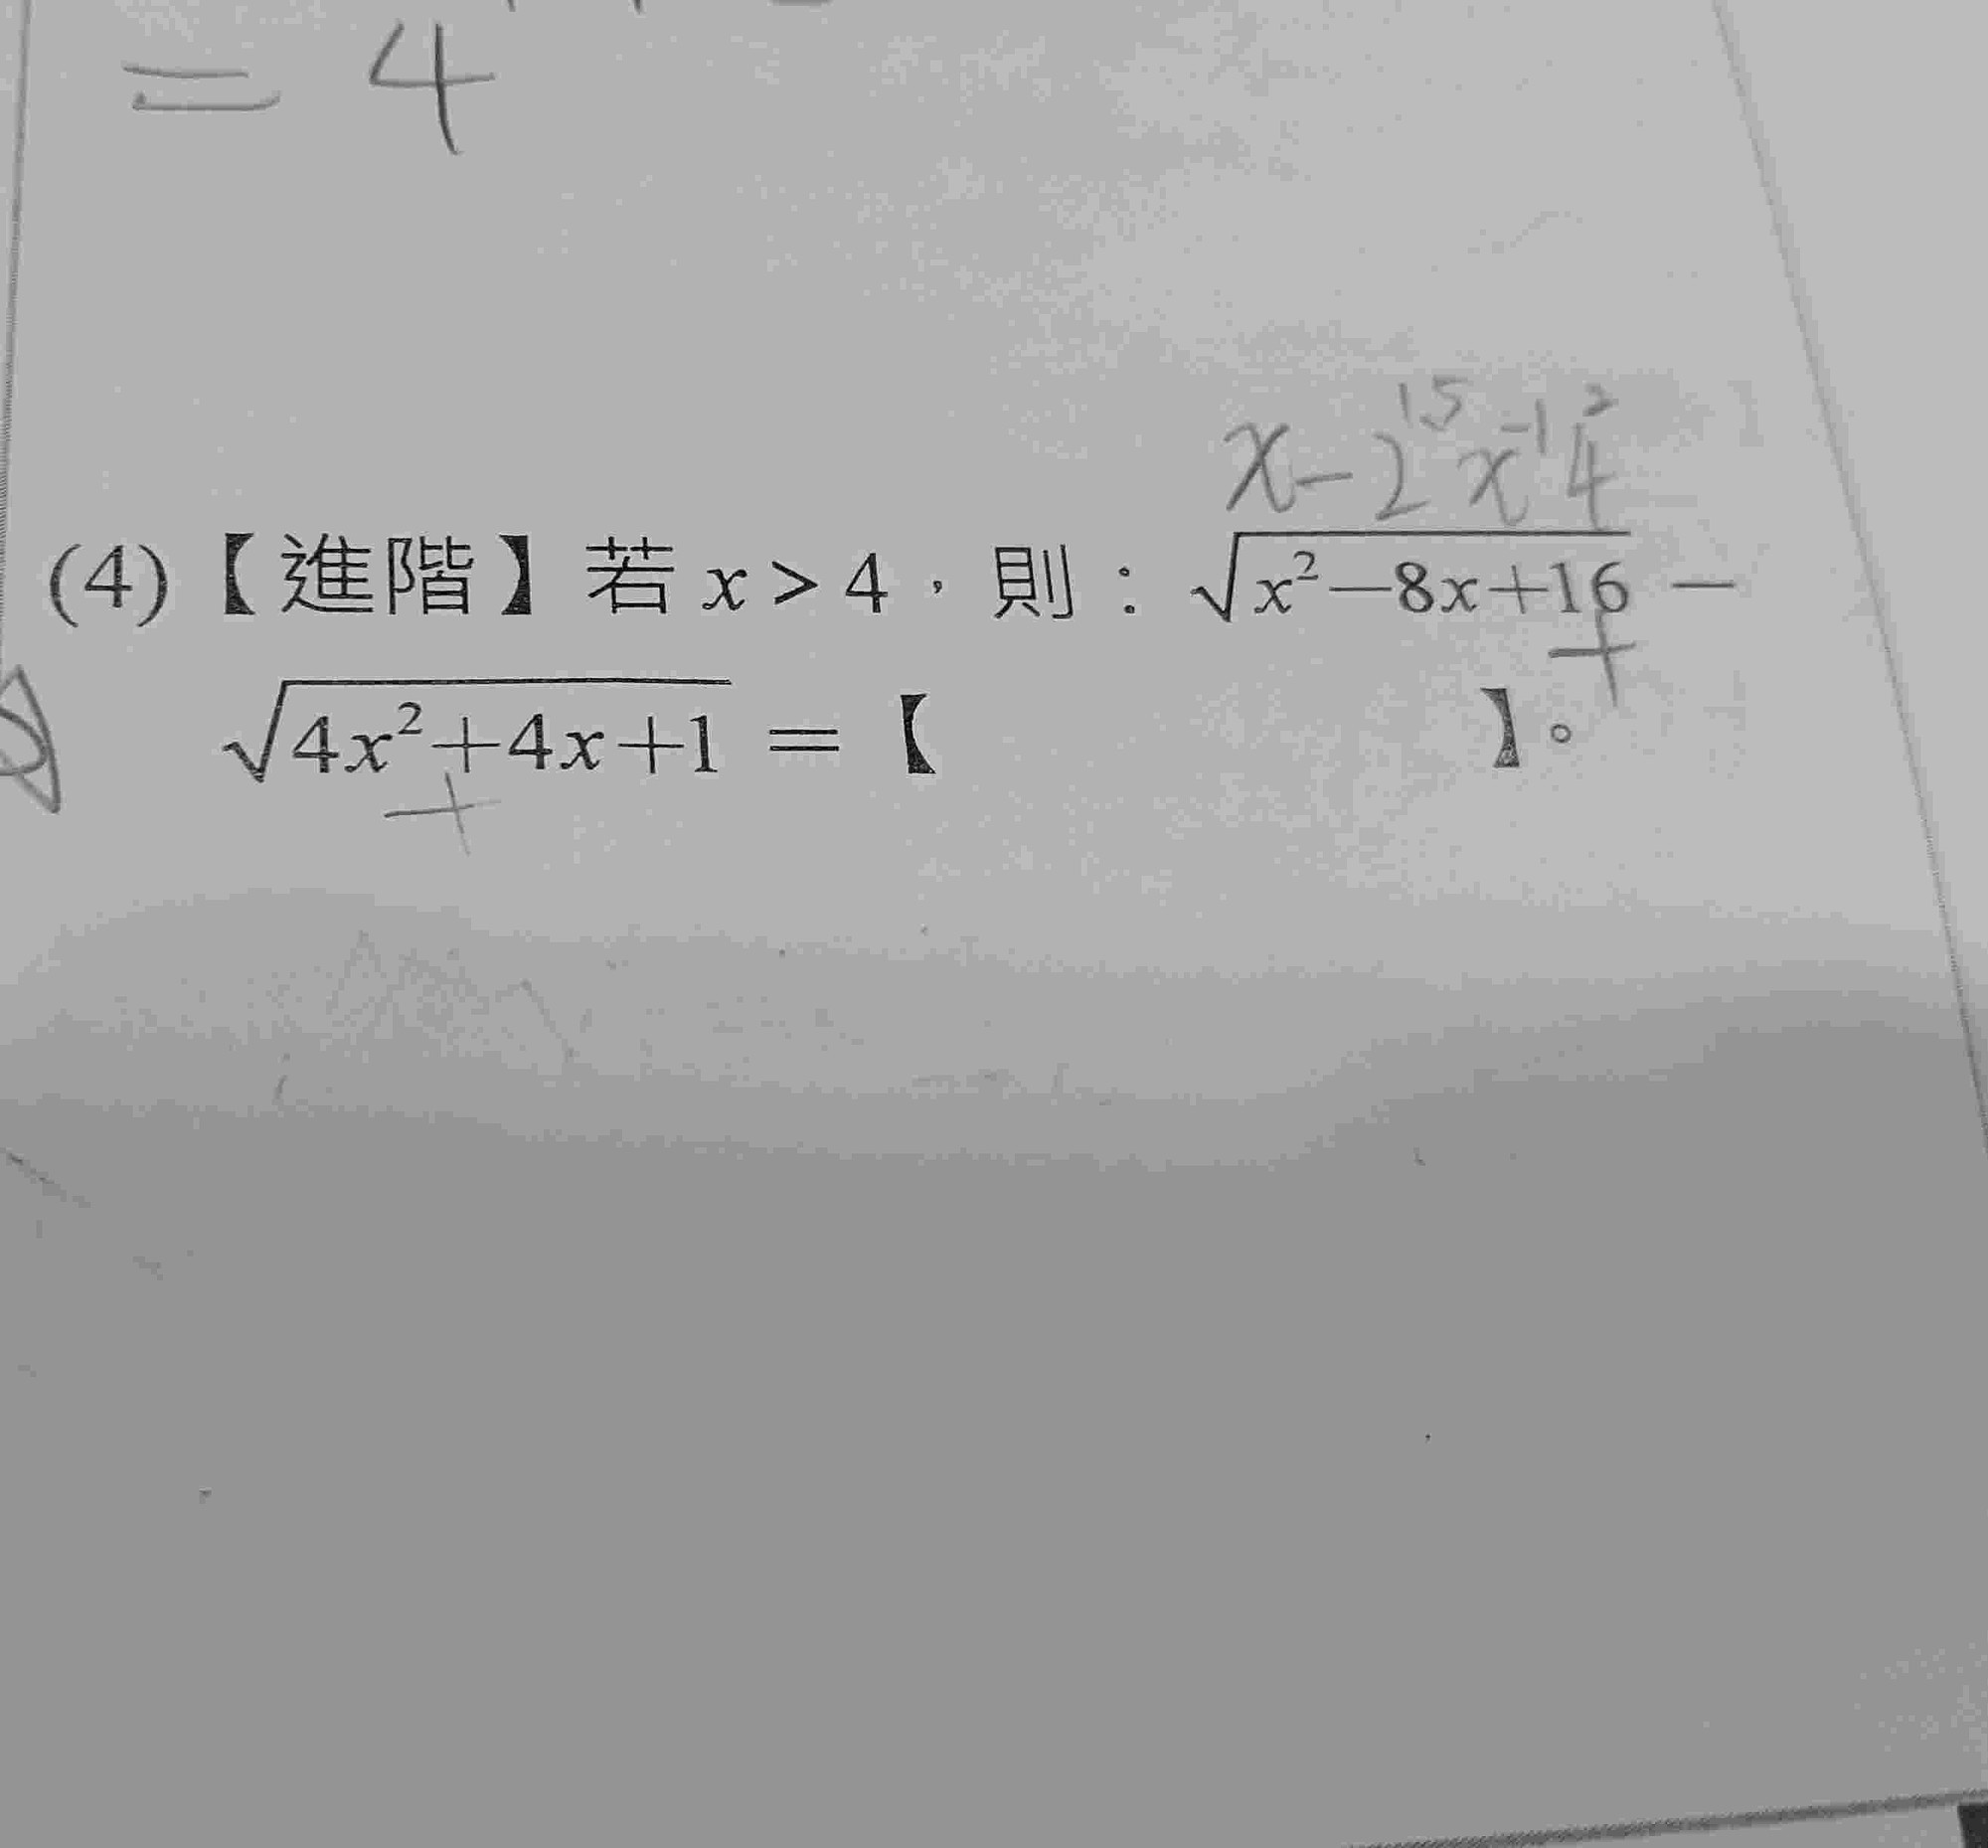 = 4
x-2^{1.5}x^{-1}4^{2}
(4)【進階】若 x > 4,則:√(x²−8x+16) −
+
√(4x²+4x+1) =【 】。
+